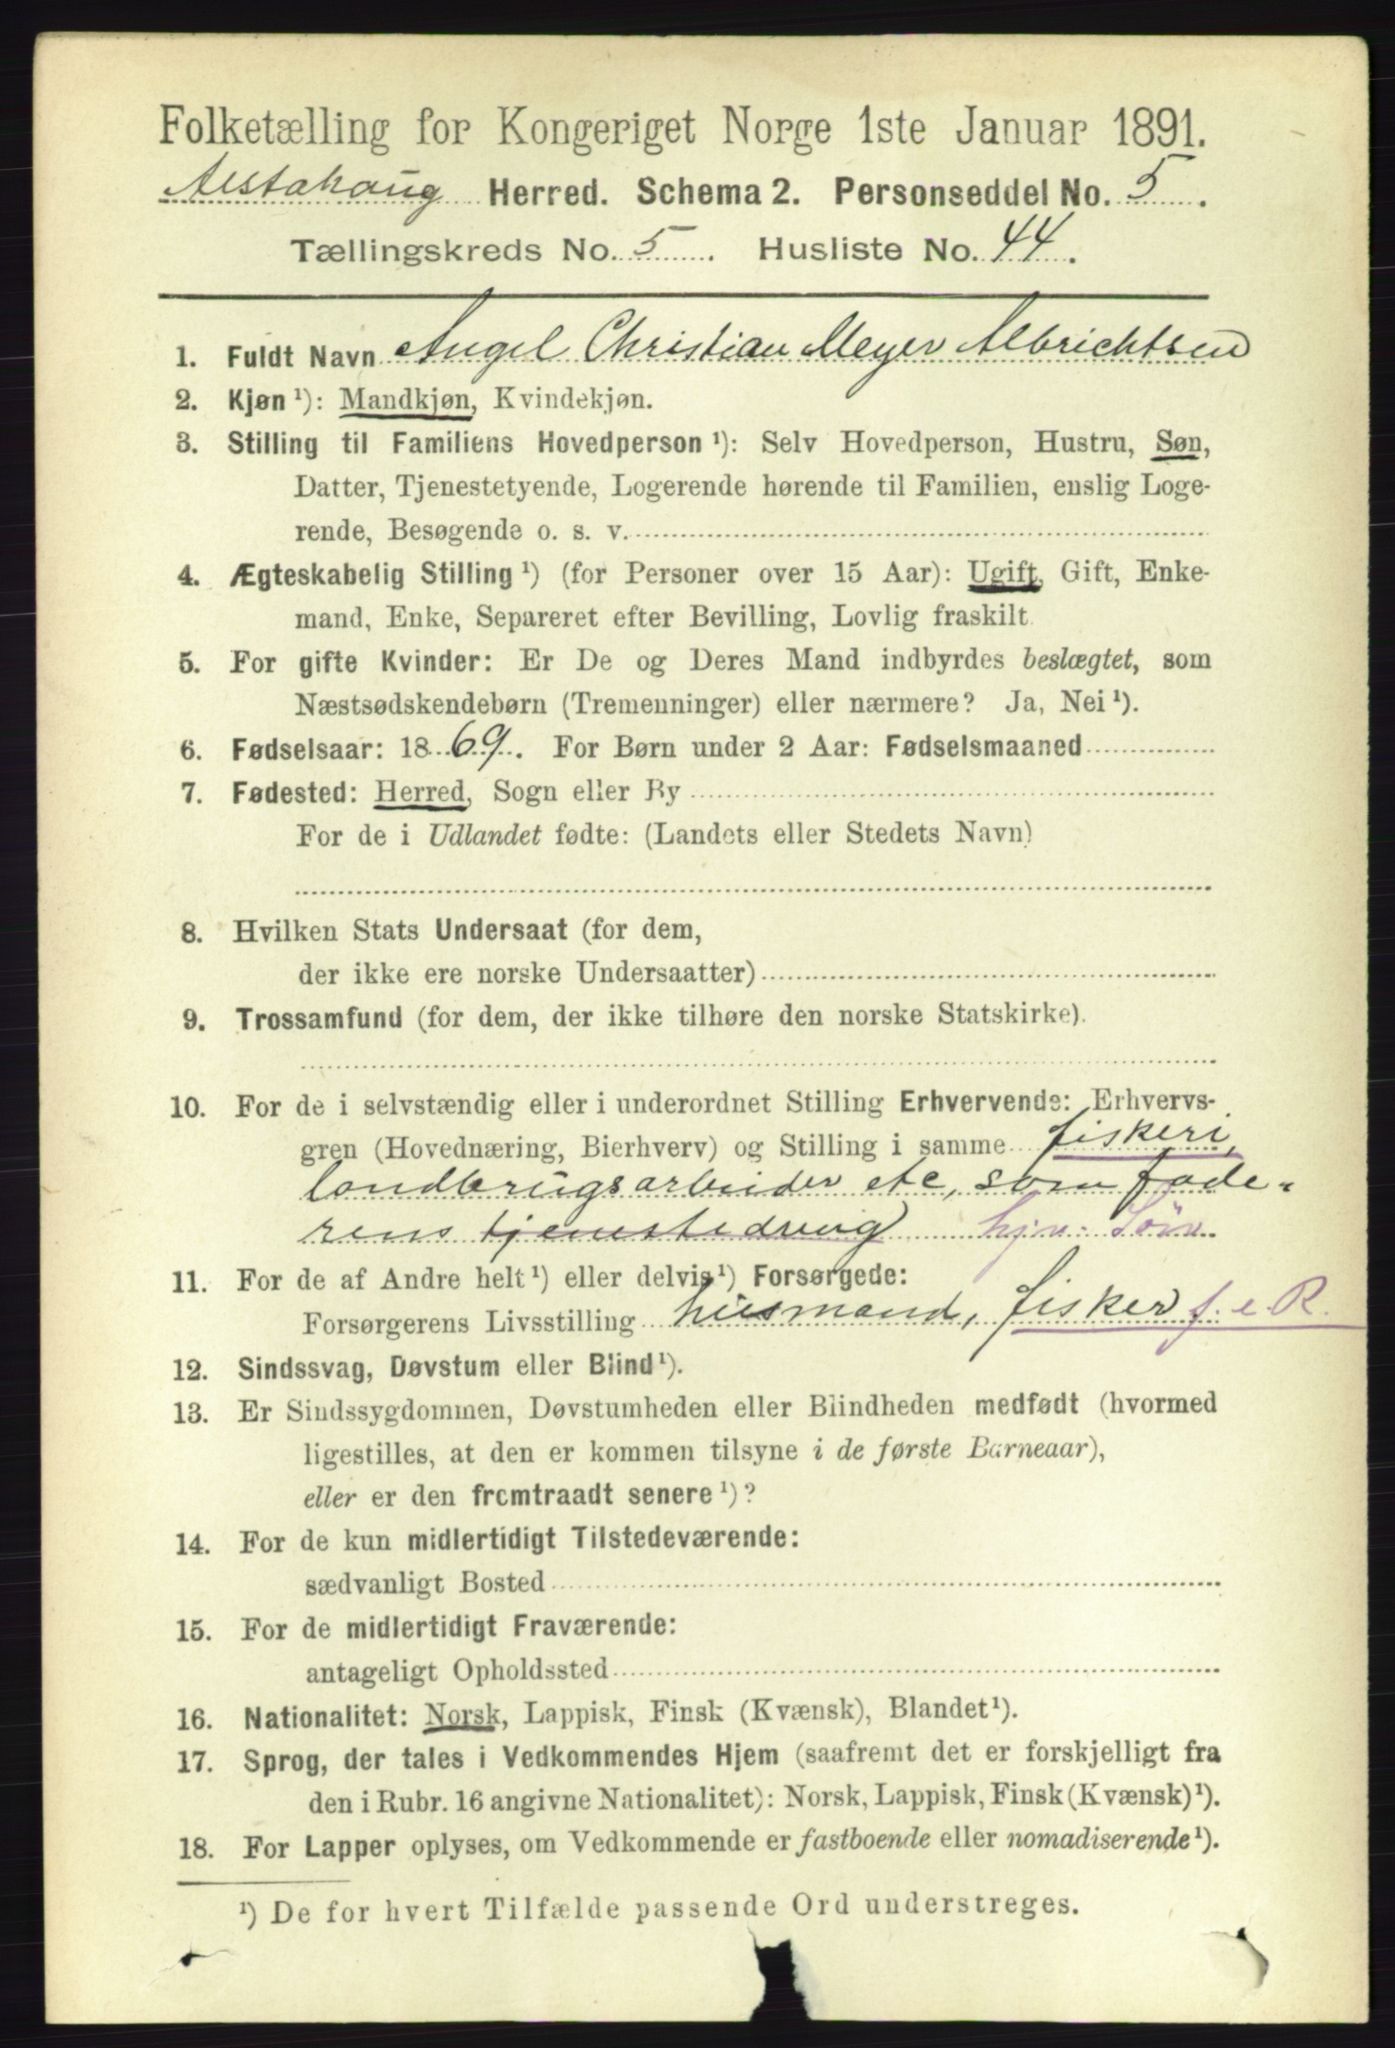 Folketælling for Kongeriget Norge 1ste Januar 1891.
Alstahaug Herred. Schema 2. Personseddel No. 5.
Tællingskreds No. 5. Husliste No. 44.
1. Fuldt Navn Angel Christian Meyer Albrichtsen
2. Kjøn ¹): Mandkjøn, Kvindekjøn.
3. Stilling til Familiens Hovedperson ¹): Selv Hovedperson, Hustru, Søn,
Datter, Tjenestetyende, Logerende hørende til Familien, enslig Loge-
rende, Besøgende o. s. v.
4. Ægteskabelig Stilling ¹) (for Personer over 15 Aar): Ugift, Gift, Enke-
mand, Enke, Separeret efter Bevilling, Lovlig fraskilt
5. For gifte Kvinder: Er De og Deres Mand indbyrdes beslægtet, som
Næstsødskendebørn (Tremenninger) eller nærmere? Ja, Nei ¹).
6. Fødselsaar: 1869. For Børn under 2 Aar: Fødselsmaaned
7. Fødested: Herred, Sogn eller By
For de i Udlandet fødte: (Landets eller Stedets Navn)
8. Hvilken Stats Undersaat (for dem,
der ikke ere norske Undersaatter)
9. Trossamfund (for dem, der ikke tilhøre den norske Statskirke).
10. For de i selvstændig eller i underordnet Stilling Erhvervende: Erhvervs-
gren (Hovednæring, Bierhverv) og Stilling i samme fiskeri,
landbrugsarbeider etc, som fade-
rens tjenestedreng) hjv. Søn
11. For de af Andre helt ¹) eller delvis ¹) Forsørgede:
Forsørgerens Livsstilling husmand, fisker f. e R.
12. Sindssvag, Døvstum eller Blind ¹).
13. Er Sindssygdommen, Døvstumheden eller Blindheden medfødt (hvormed
ligestilles, at den er kommen tilsyne i de første Barneaar),
eller er den fremtraadt senere ¹)?
14. For de kun midlertidigt Tilstedeværende:
sædvanligt Bosted
15. For de midlertidigt Fraværende:
antageligt Opholdssted
16. Nationalitet: Norsk, Lappisk, Finsk (Kvænsk), Blandet ¹).
17. Sprog, der tales i Vedkommendes Hjem (saafremt det er forskjelligt fra
den i Rubr. 16 angivne Nationalitet): Norsk, Lappisk, Finsk (Kvænsk) ¹).
18. For Lapper oplyses, om Vedkommende er fastboende eller nomadiserende ¹).
¹) De for hvert Tilfælde passende Ord understreges.